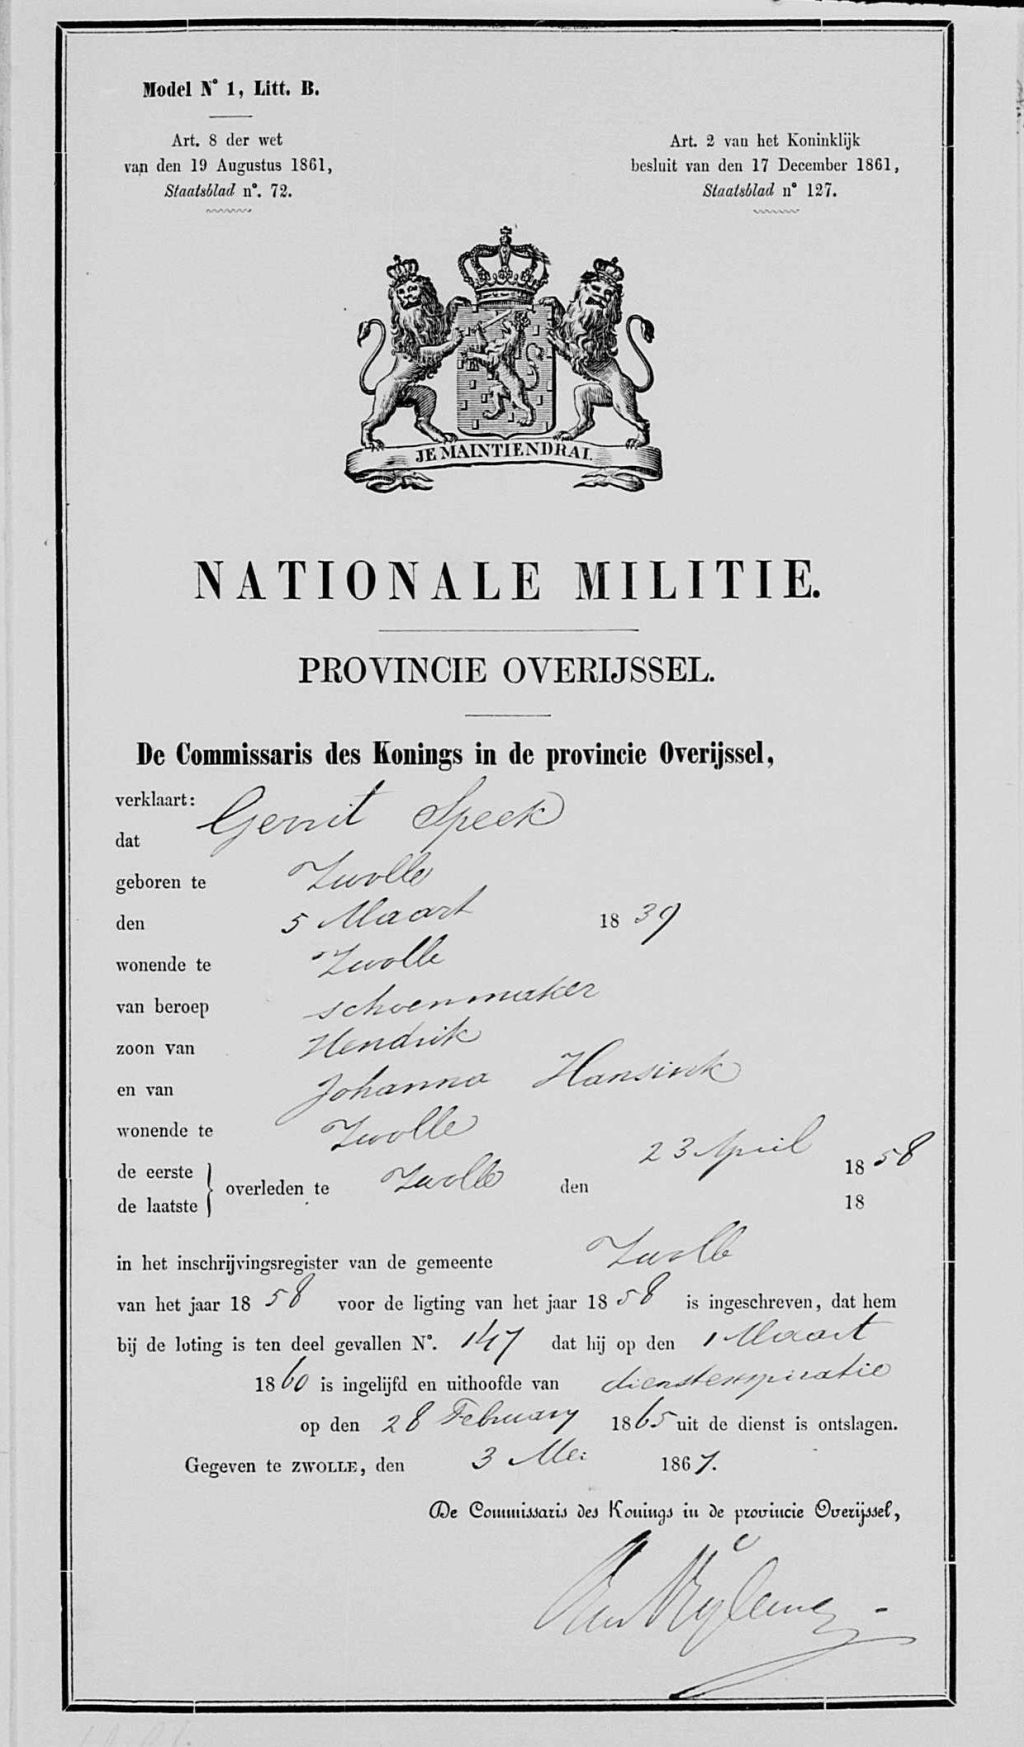 Model N° 1, Litt. B.
Art. 8 der wet
van den 19 Augustus 1861,
Staatsblad n°. 72.
Art. 2 van het Koninklijk
besluit van den 17 December 1861,
Staatsblad n° 127.
JE MAINTIENDRAI.
NATIONALE MILITIE.
PROVINCIE OVERIJSSEL.
De Commissaris des Konings in de provincie Overijssel,
verklaart:
dat Gerrit Speek
geboren te Zwolle
den 5 Maart 1839
wonende te Zwolle
van beroep schoenmaker
zoon van Hendrik
en van Johanna Hansink
wonende te Zwolle
de eerste } overleden te Zwolle den 23 April 1858
de laatste } 18
in het inschrijvingsregister van de gemeente Zwolle
van het jaar 1858 voor de ligting van het jaar 1858 is ingeschreven, dat hem
bij de loting is ten deel gevallen N°. 147 dat hij op den 1 Maart
1860 is ingelijfd en uithoofde van dienstexpiratie
op den 28 February 1865 uit de dienst is ontslagen.
Gegeven te ZWOLLE, den 3 Mei 1867.
De Commissaris des Konings in de provincie Overijssel,